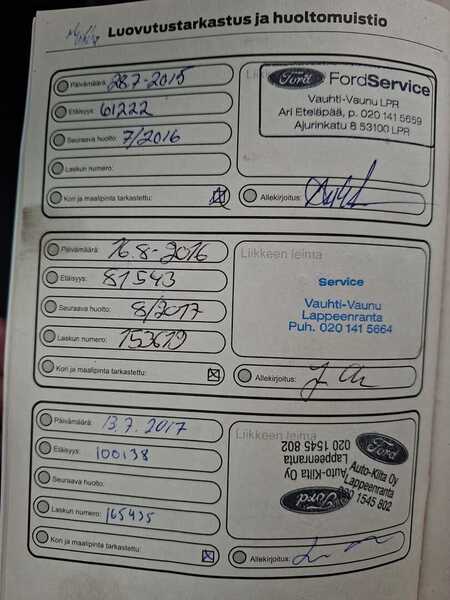 Luovutustarkastus ja huoltomuistio
Päivämäärä: 28.7-2015
Etäisyys: 61222
Seuraava huolto: 7/2016
Laskun numero:
Kori ja maalipinta tarkastettu:
Ford FordService
Vauhti-Vaunu LPR
Ari Eteläpää, p. 020 141 5659
Ajurinkatu 8 53100 LPR
Allekirjoitus:
Päivämäärä: 16.8-2016
Etäisyys: 81543
Seuraava huolto: 8/2017
Laskun numero: 153619
Kori ja maalipinta tarkastettu:
Liikkeen leima
Service
Vauhti-Vaunu
Lappeenranta
Puh. 020 141 5664
Allekirjoitus:
Päivämäärä: 13.7.2017
Etäisyys: 100138
Seuraava huolto:
Laskun numero: 165435
Kori ja maalipinta tarkastettu:
Liikkeen leima
Ford
Auto-Kilta Oy
Lappeenranta
020 1545 802
Ford
Auto-Kilta Oy
Lappeenranta
020 1545 802
Allekirjoitus: